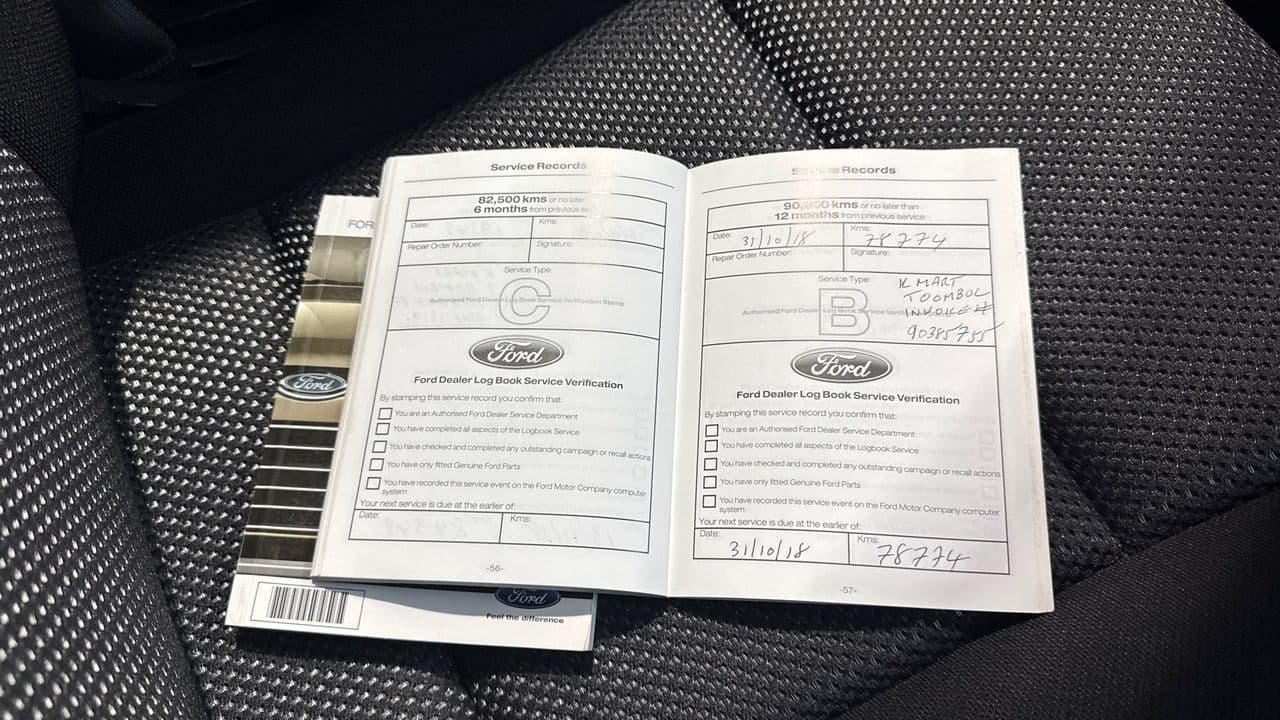 Service Records
82,500 kms or no later
6 months from previous
Date:
Kms:
Repair Order Number:
Signature:
Service Type
C
Authorised Ford Dealer Log Book Service Verification Stamp
Ford
Ford Dealer Log Book Service Verification
By stamping this service record you confirm that:
You are an Authorised Ford Dealer Service Department
You have completed all aspects of the Logbook Service
You have checked and completed any outstanding campaign or recall actions
You have only fitted Genuine Ford Parts
You have recorded this service event on the Ford Motor Company computer
system
Your next service is due at the earlier of:
Date:
Kms:
-56-
Records
kms or no later than
12 months from previous service
Date: 31/10/18
Kms: 78774
Repair Order Number:
Signature:
Service Type
K MART
TOOMBUL
INVOICE #
90385755
B
Authorised Ford Dealer Log Book Service
Ford
Ford Dealer Log Book Service Verification
By stamping this service record you confirm that:
You are an Authorised Ford Dealer Service Department
You have completed all aspects of the Logbook Service
You have checked and completed any outstanding campaign or recall actions
You have only fitted Genuine Ford Parts
You have recorded this service event on the Ford Motor Company computer
system
Your next service is due at the earlier of:
Date: 31/10/18
Kms: 78774
-57-
FOR
Ford
Ford
Feel the difference